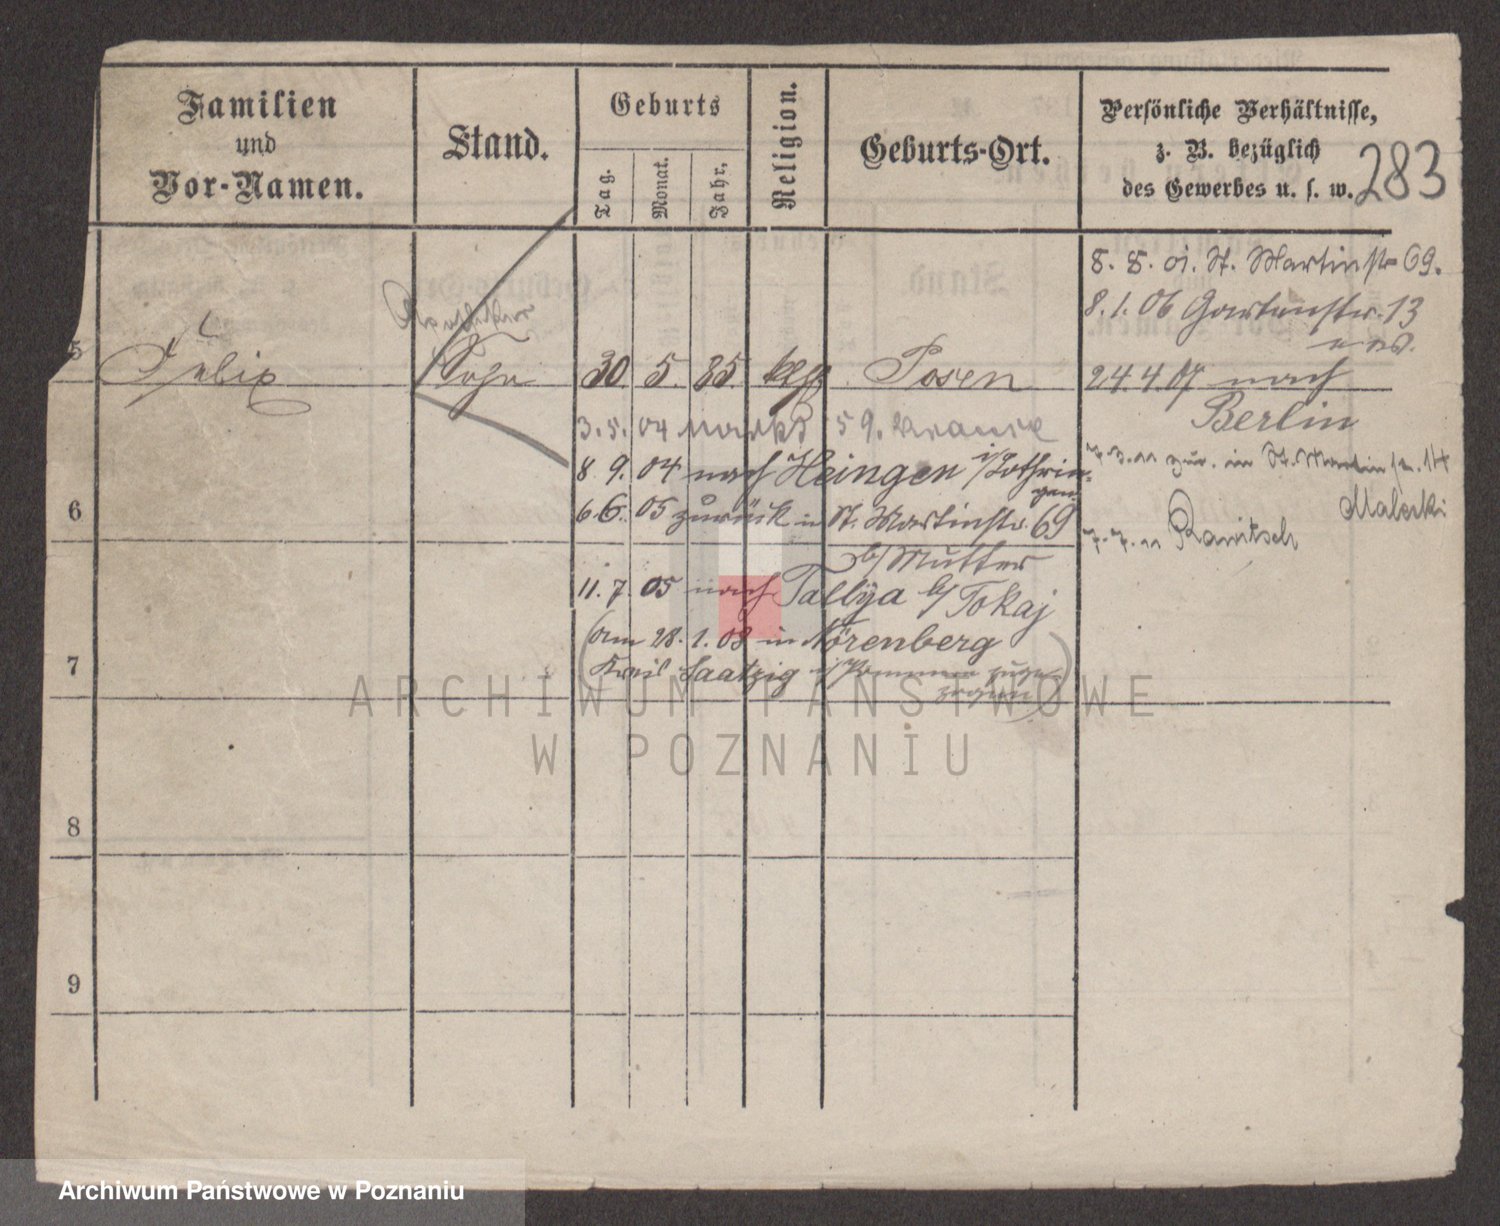 Familien
und
Vor-Namen.
Stand.
Geburts
Tag.
Monat.
Jahr.
Religion.
Geburts-Ort.
Persönliche Verhältnisse,
z. B. bezüglich
des Gewerbes u. s. w.
283
8. 8. 01. St. Martinstr 69.
8. 1. 06 Gartenstr. 13
5 Felix
Sohn 30 5. 85. Posen
24. 4. 07 nach
Berlin
3. 5. 04 Markt 59.
8 9. 04 nach Heingen i/Lothrin-
gen
7. 3. 11 zur. in St. Martinstr. 14
Malecki
6
6. 6. 05 zurück in St. Martinstr. 69
b/ Mutter
7. 7. 11
11. 7. 05 nach Tallya b/ Tokaj
(am 28. 1. 08 in Nörenberg
7
Kreis Saatzig i/Pommern zuge-
zogen)
8
9
ARCHIWUM PAŃSTWOWE
W POZNANIU
Archiwum Państwowe w Poznaniu